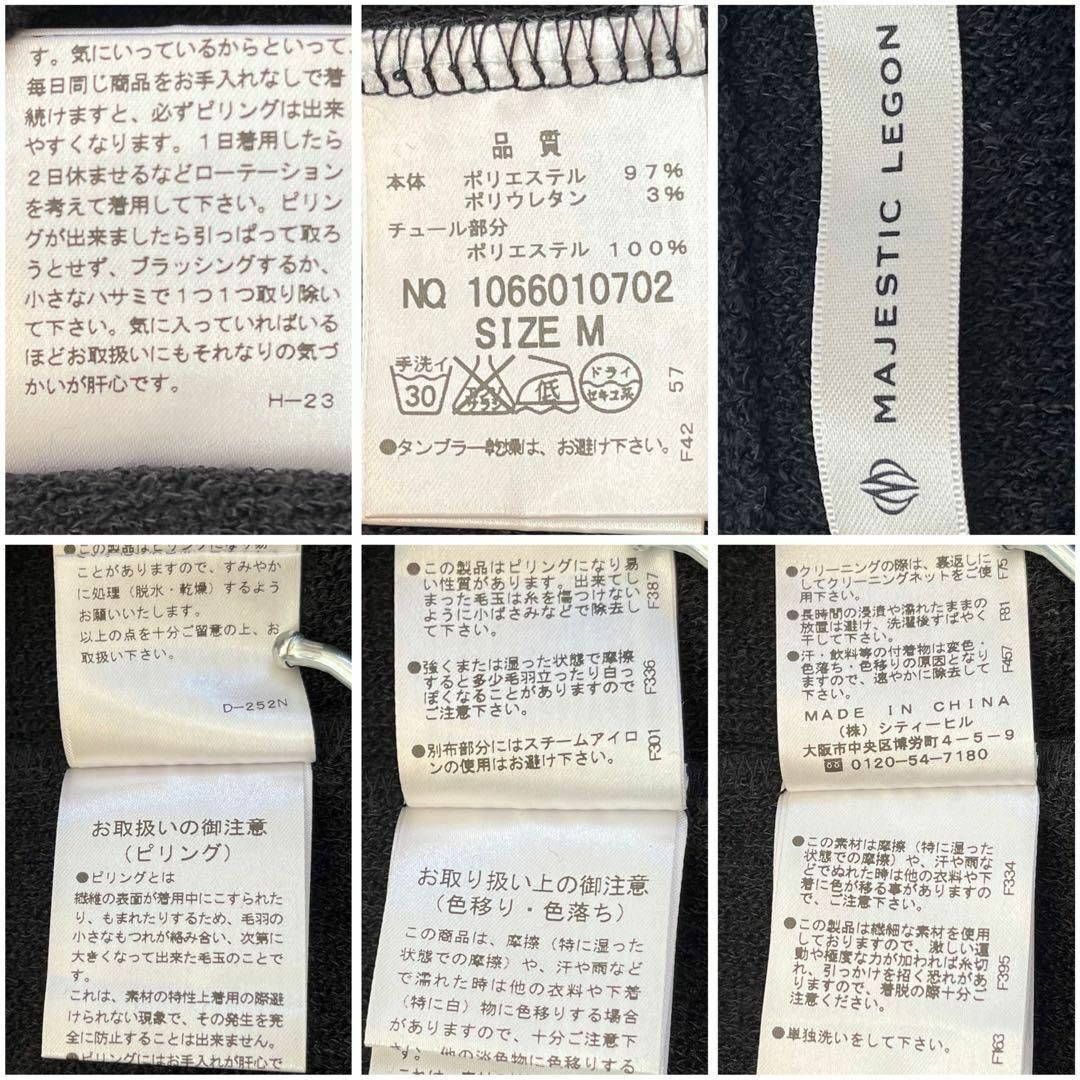 す。気にいっているからといって、
毎日同じ商品をお手入れなしで着
続けますと、必ずピリングは出来
やすくなります。1日着用したら
2日休ませるなどローテーション
を考えて着用して下さい。ピリン
グが出来ましたら引っぱって取ろ
うとせず、ブラッシングするか、
小さなハサミで1つ1つ取り除い
て下さい。気に入っていればいる
ほどお取扱いにもそれなりの気づ
かいが肝心です。
H-23
品質
本体 ポリエステル 97%
ポリウレタン 3%
チュール部分
ポリエステル 100%
NO. 1066010702
SIZE M
手洗イ 30 エンソサラシ 低 ドライ セキユ系
57
●タンブラー乾燥は、お避け下さい。
F42
MAJESTIC LEGON
ことがありますので、すみやか
に処理(脱水・乾燥)するよう
お願いいたします。
以上の点を十分ご留意の上、お
取扱い下さい。
D-252N
お取扱いの御注意
(ピリング)
●ピリングとは
繊維の表面が着用中にこすられた
り、もまれたりするため、毛羽の
小さなもつれが絡み合い、次第に
大きくなって出来た毛玉のことで
す。
これは、素材の特性上着用の際避
けられない現象で、その発生を完
全に防止することは出来ません。
●ピリングにはお手入れが肝心で
●この製品はピリングになり易
い性質があります。出来てし
まった毛玉は糸を傷つけない
ように小ばさみなどで除去し
て下さい。
F387
●強くまたは湿った状態で摩擦
すると多少毛羽立ったり白っ
ぽくなることがありますので
ご注意下さい。
F336
●別布部分にはスチームアイロ
ンの使用はお避け下さい。
F301
お取り扱い上の御注意
(色移り・色落ち)
この商品は、摩擦(特に湿った
状態での摩擦)や、汗や雨など
で濡れた時は他の衣料や下着
(特に白)物に色移りする場合
がありますので、十分ご注意下
さい。他の淡色物に色移りする
●クリーニングの際は、裏返しに
してクリーニングネットをご使
用下さい。
F75
●長時間の浸漬や濡れたままの
放置は避け、洗濯後すばやく
干して下さい。
F81
●汗・飲料等の付着物は変色・
色落ち・色移りの原因となり
ますので、速やかに除去して
下さい。
F457
MADE IN CHINA
(株)シティーヒル
大阪市中央区博労町4-5-9
0120-54-7180
●この素材は摩擦(特に湿った
状態での摩擦)や、汗や雨な
どでぬれた時は他の衣料や下
着に色が移る事がありますの
で、ご注意下さい。
F334
●この製品は繊細な素材を使用
しておりますので、激しい運
動や極度な力が加われば糸切
れ、引っかけを招く恐れがあ
りますので、着脱の際十分ご
注意ください。
F395
●単独洗いをして下さい。
F163